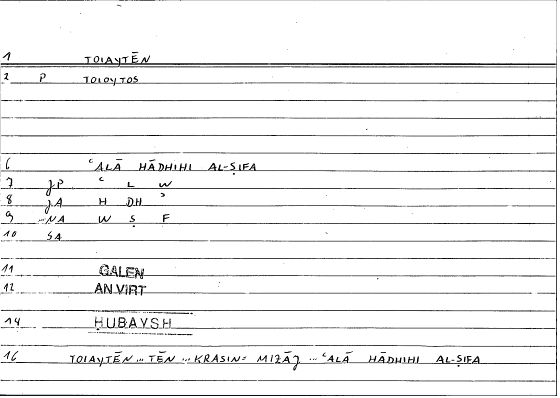 1 TOIAYTĒN
2 P TOIOYTOS
6 ʿALĀ HĀDHIHI AL-ṢIFA
7 JP ʿ L W
8 JA H DH ʾ
9 -NA W Ṣ F
10 SA
11 GALEN
12 AN VIRT
14 ḤUBAYSH
16 TOIAYTĒN ... TĒN ... KRASIN = MIZĀJ ... ʿALĀ HĀDHIHI AL-ṢIFA